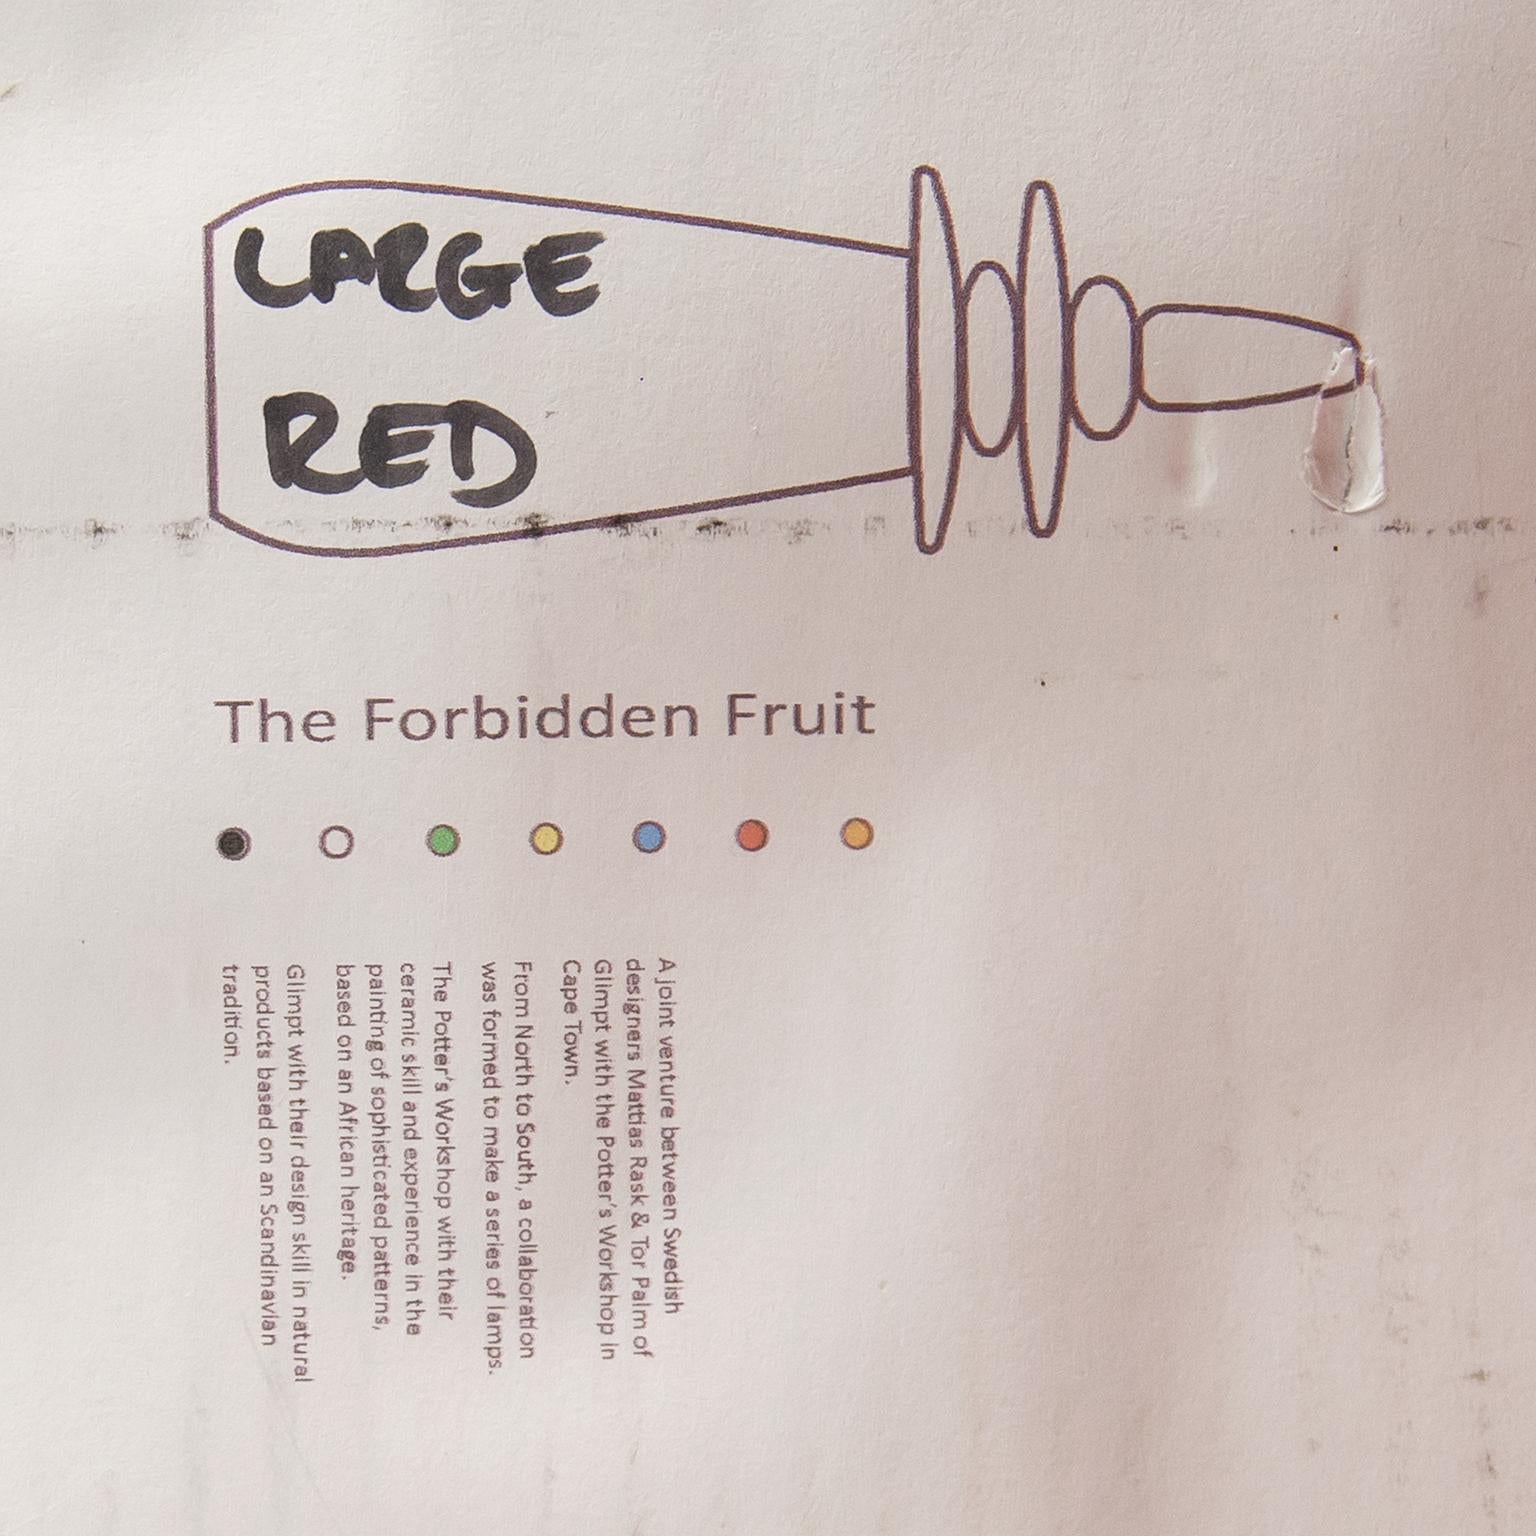 LARGE
RED
The Forbidden Fruit
A joint venture between Swedish
designers Mattias Rask & Tor Palm of
Glimpt with the Potter's Workshop in
Cape Town.
From North to South, a collaboration
was formed to make a series of lamps.
The Potter's Workshop with their
ceramic skill and experience in the
painting of sophisticated patterns,
based on an African heritage.
Glimpt with their design skill in natural
products based on an Scandinavian
tradition.